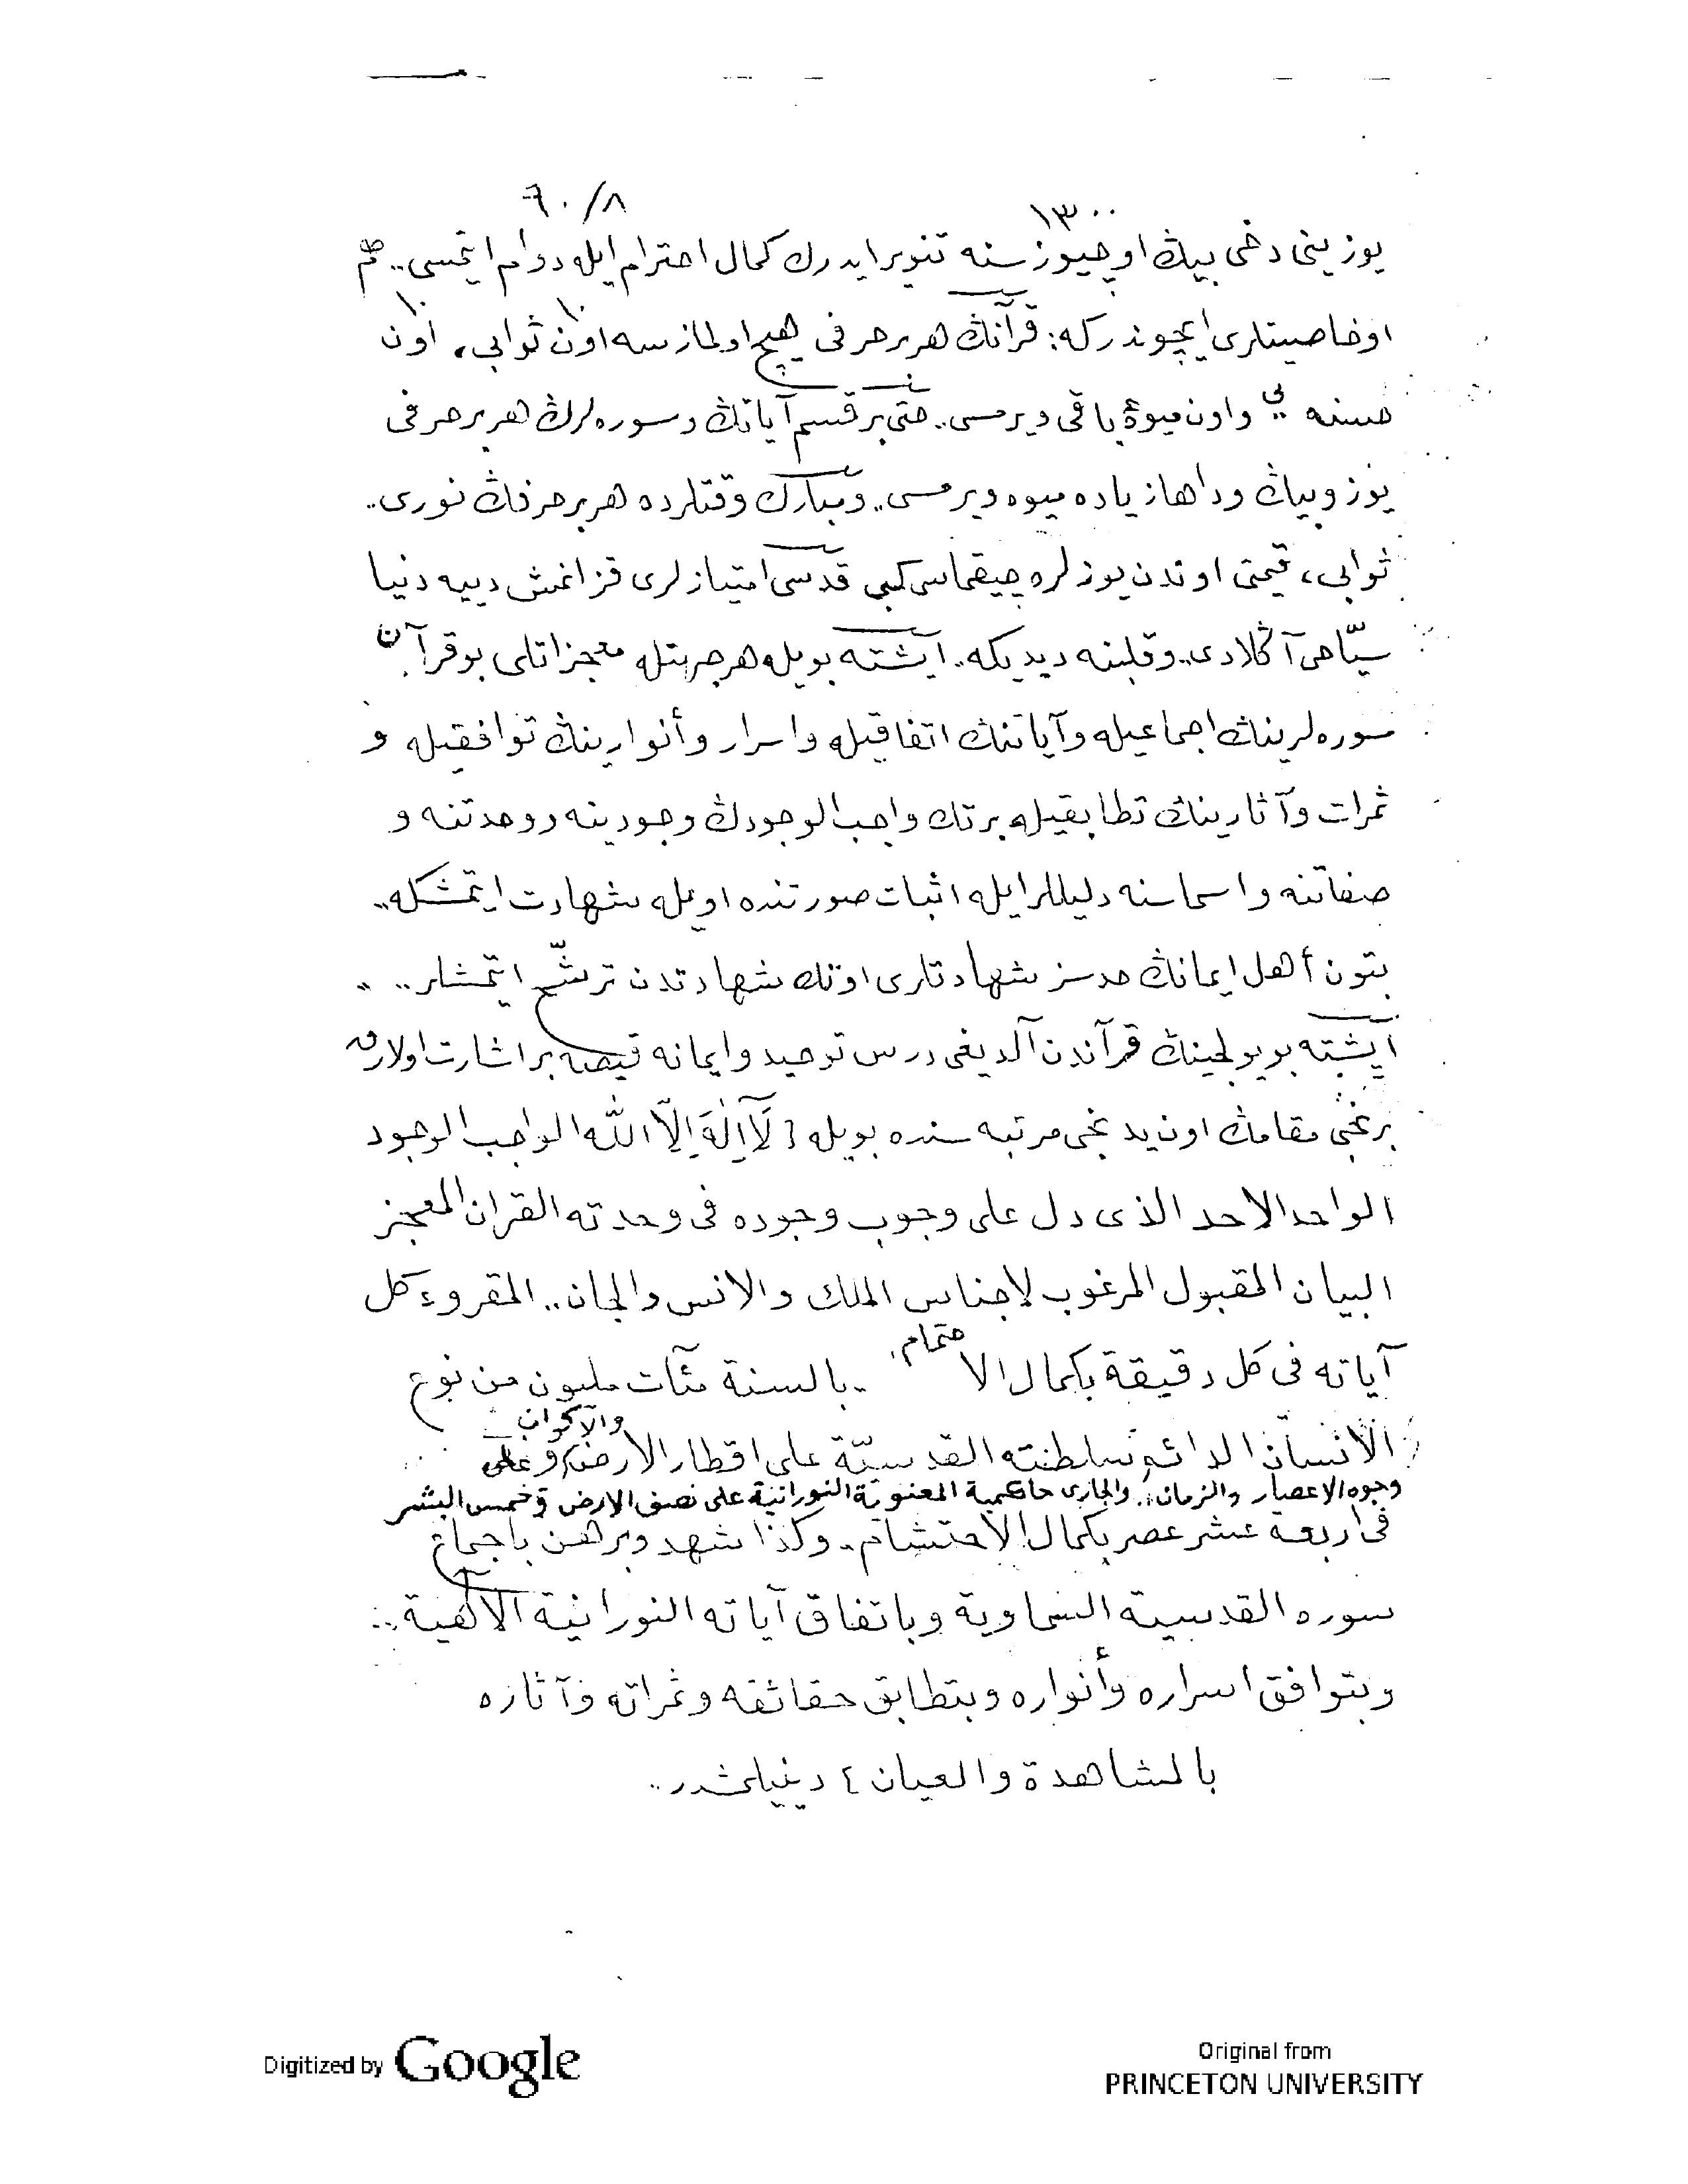 ٦٠/٨
١٣٠٠
يوزينى دخى بيڭ اوچيوز سنه تنوير ايدرك كمال احترام ايله دوام ايتمسى.. هم
١٠ ١٠
او خاصيتلرى ايچوندر كه: قرآنڭ هر بر حرفى هيچ اولمازسه اون ثوابى، اون
حسنه سى واون ميوۀ باقى ويرمسى.. حتى بر قسم آياتڭ وسوره لرڭ هر بر حرفى
يوز وبيڭ وداها زياده ميوه ويرمسى.. ومبارك وقتلرده هر بر حرفڭ نورى..
ثوابى، قيمتى اوندن يوزلره چيقماسى كبى قدسى امتيازلرى قزانمش دييه دنيا
سيّاحى آڭلادى.. وقلبنه ديديكه.. ايشته بويله هر جهتله معجزاتلى بو قرآن
سوره لرينڭ اجماعيله وآياتنڭ اتفاقيله واسرار وأنوارينڭ توافقيله و
ثمرات وآثارينڭ تطابقيله برتك واجب الوجودڭ وجودينه ووحدتنه و
صفاتنه واسماسنه دليللر ايله اثبات صورتنده اويله شهادت ايتمشكه..
بتون أهل ايمانڭ حدسز شهادتلرى اونك شهادتدن ترشّح ايتمشلر..
ايشته بو يولجينڭ قرآندن آلديغى درس توحيد وايمانه قيصه بر اشارت اولارق
برنجى مقامڭ اون يدنجى مرتبه سنده بويله [لَآ اِلٰهَ اِلاّ اللّٰه الواجب الوجود
الواحد الاحد الذى دل على وجوب وجوده فى وحدته القران المعجز
البيان المقبول المرغوب لاجناس الملك والانس والجان.. المقروء كل
آياته فى كل دقيقة بكمال الاحتمام. بالسنة مئات مليون من نوع
والاكوان
الانسان الدائم سلطنته القدسيّة على اقطار الارض وعلى
وجوه الاعصار والزمان.. والجارى حاكمية المعنوية النورانية على نصف الارض وخمس البشر
فى اربعة عشر عصر بكمال الاحتشام.. وكذا شهد وبرهن باجماع
سوره القدسية السماوية وباتفاق آياته النورانية الالٓهية..
وبتوافق اسراره وأنواره وبتطابق حقائقه وثمراته وآثاره
بالمشاهدة والعيان] دينيلمشدر..
Digitized by Google
Original from
PRINCETON UNIVERSITY